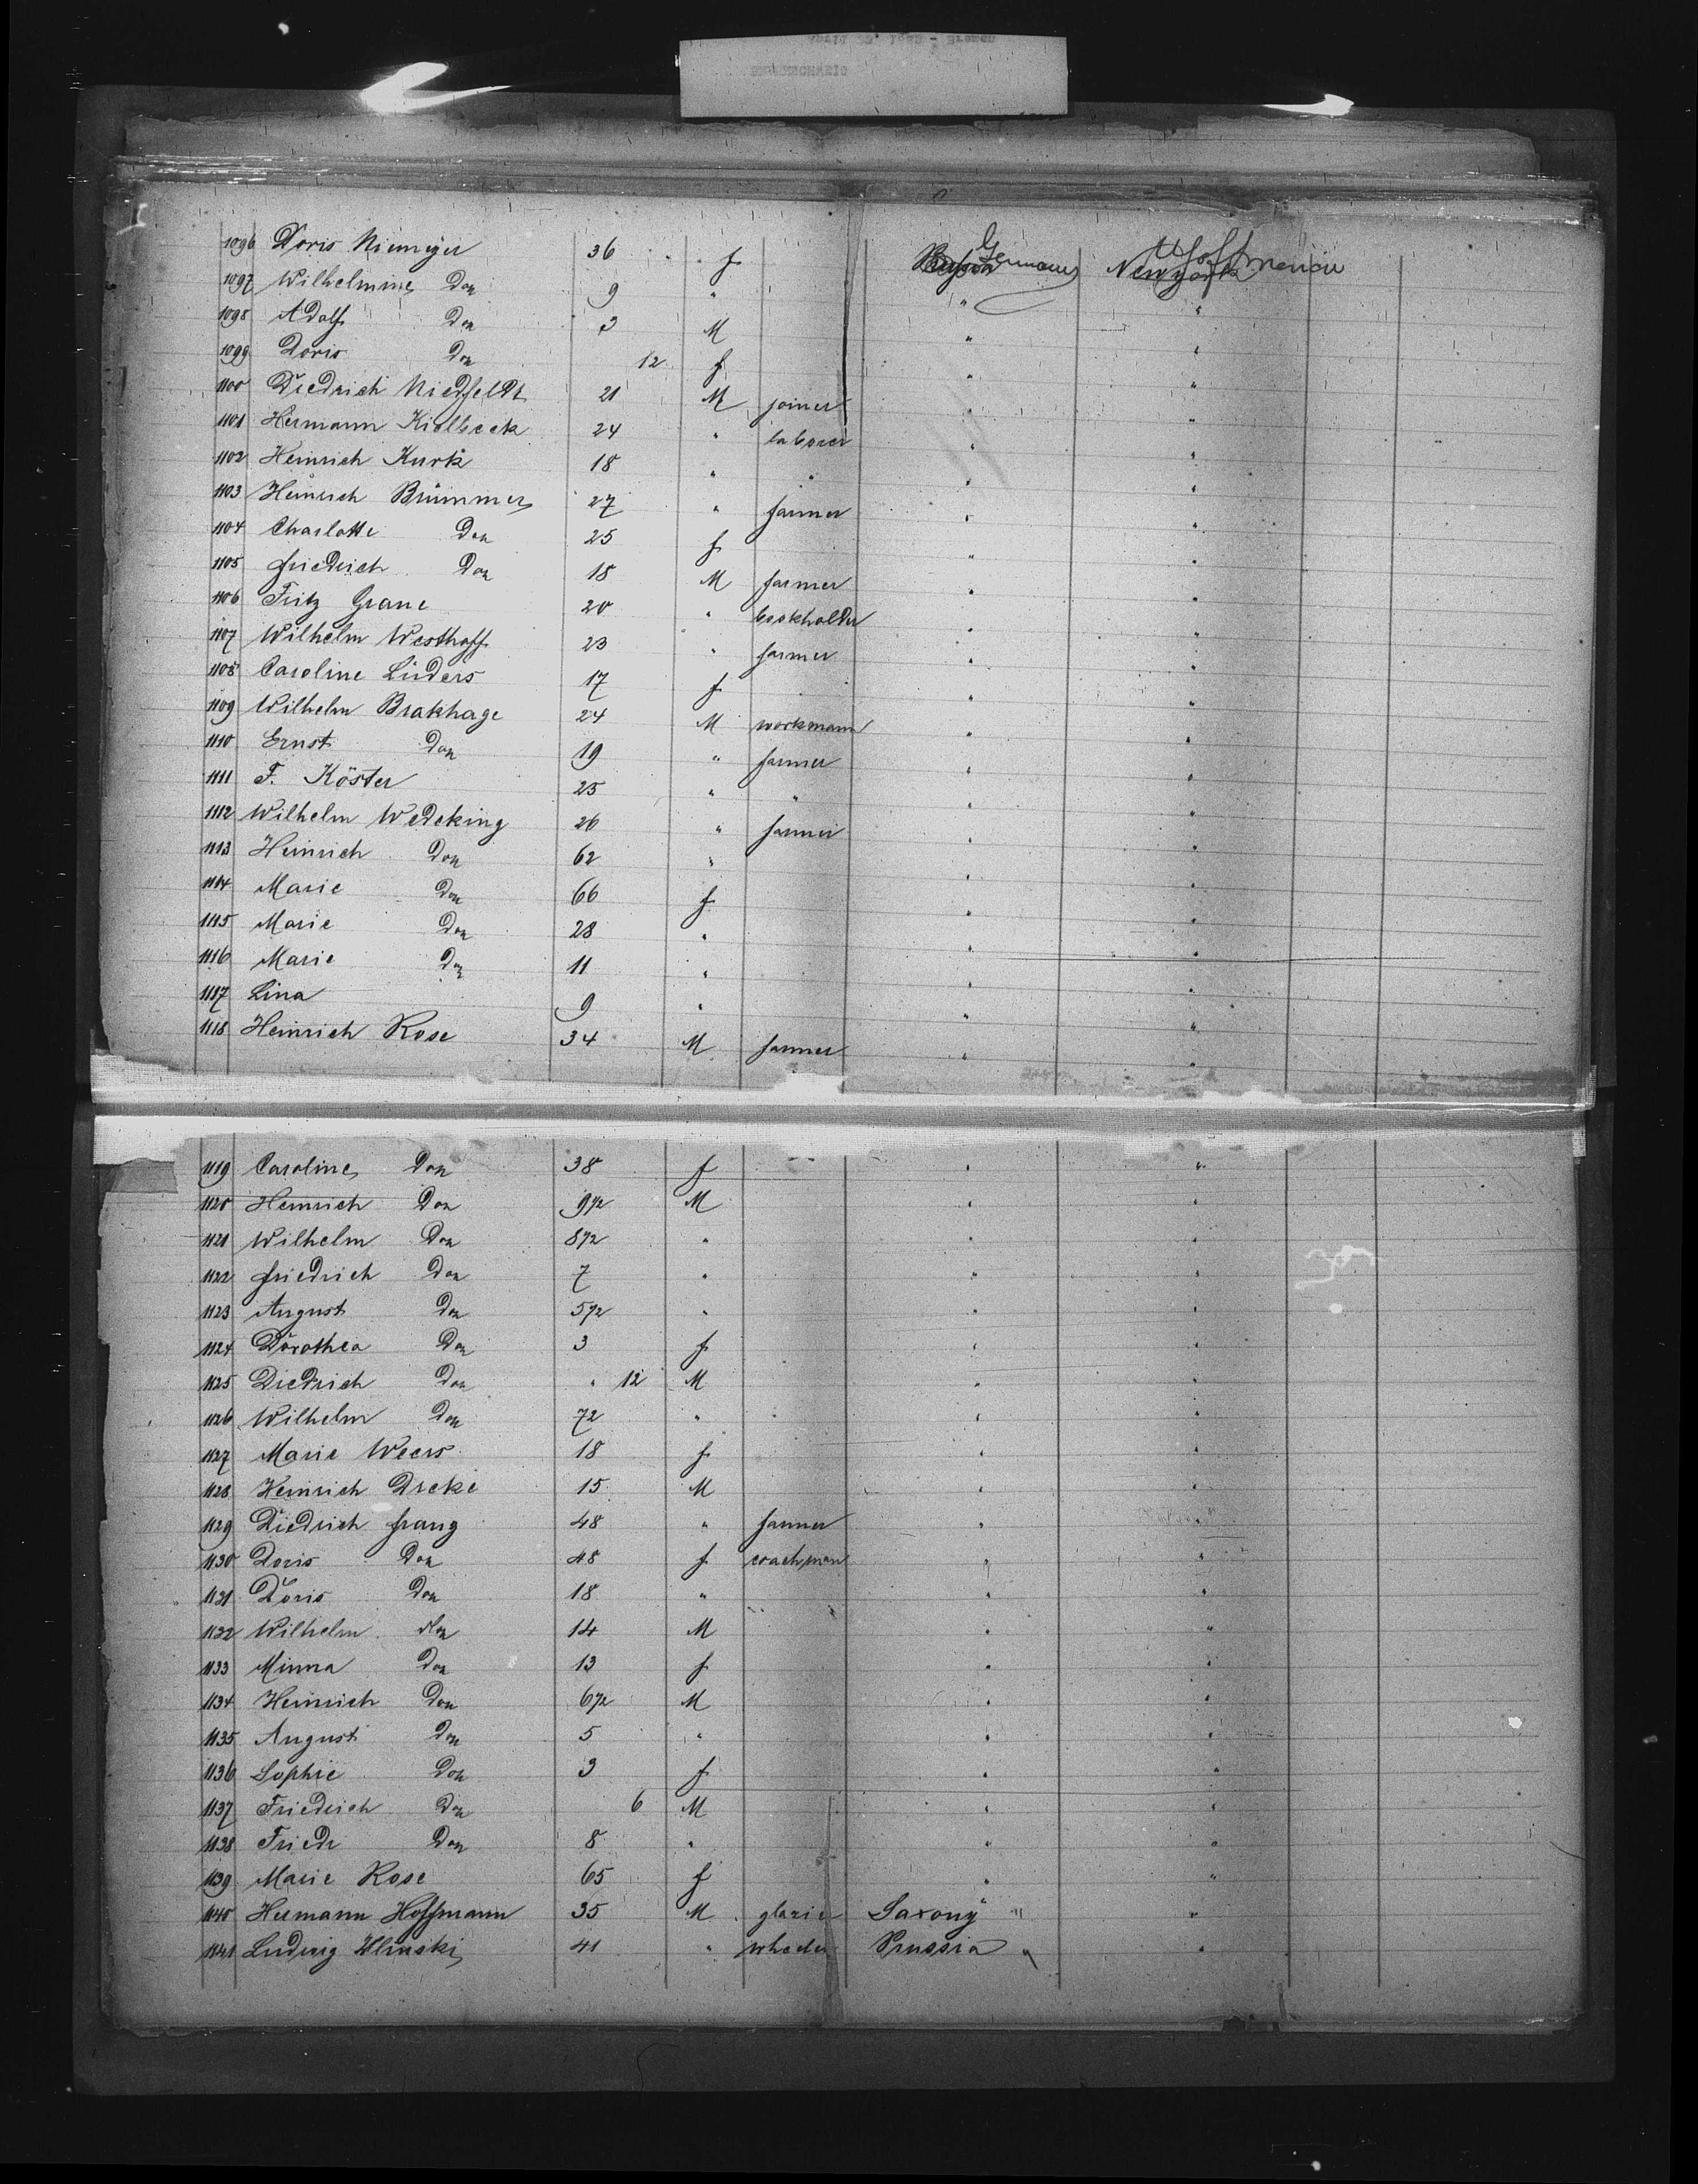 1096 Doris Niemeyer 36 f Germany U S of America New york
1097 Wilhelmine Do 9 " " "
1098 Adolf Do 3 M " "
1099 Doris Do 12 f " "
1100 Diedrich Niedfeldt 21 M joiner " "
1101 Hermann Kielbeck 24 " laborer " "
1102 Heinrich Kurk 18 " " " "
1103 Heinrich Brümmer 27 " farmer " "
1104 Charlotte Do 25 f " "
1105 Friedrich Do 18 M farmer " "
1106 Fritz Grane 20 " bookholder " "
1107 Wilhelm Westhoff 23 " farmer " "
1108 Caroline Lüders 17 f " "
1109 Wilhelm Brakhage 24 M workmann " "
1110 Ernst Do 19 " farmer " "
1111 F. Köster 25 " " " "
1112 Wilhelm Wedeking 26 " farmer " "
1113 Heinrich Do 62 " " "
1114 Marie Do 66 f " "
1115 Marie Do 28 " " "
1116 Marie Do 11 " " "
1117 Lina 9 " " "
1118 Heinrich Rose 34 M farmer " "
1119 Caroline Do 38 f " "
1120 Heinrich Do 9 1/2 M " "
1121 Wilhelm Do 8 1/2 " " "
1122 Friedrich Do 7 " " "
1123 August Do 5 1/2 " " "
1124 Dorothea Do 3 f " "
1125 Diedrich Do " 12 M " "
1126 Wilhelm Do 72 " " "
1127 Marie Weers 18 f " "
1128 Heinrich Dreke 15 M " "
1129 Diedrich Franz 48 " farmer " "
1130 Doris Do 48 f coachman " "
1131 Doris Do 18 " " "
1132 Wilhelm Do 14 M " "
1133 Minna Do 13 f " "
1134 Heinrich Do 6 1/2 M " "
1135 August Do 5 " " "
1136 Sophie Do 3 f " "
1137 Friedrich Do 6 M " "
1138 Friedr Do 8 " " "
1139 Marie Rose 65 f " "
1140 Hermann Hoffmann 35 M glazier Saxony " "
1141 Ludwig 41 " Prussia " "